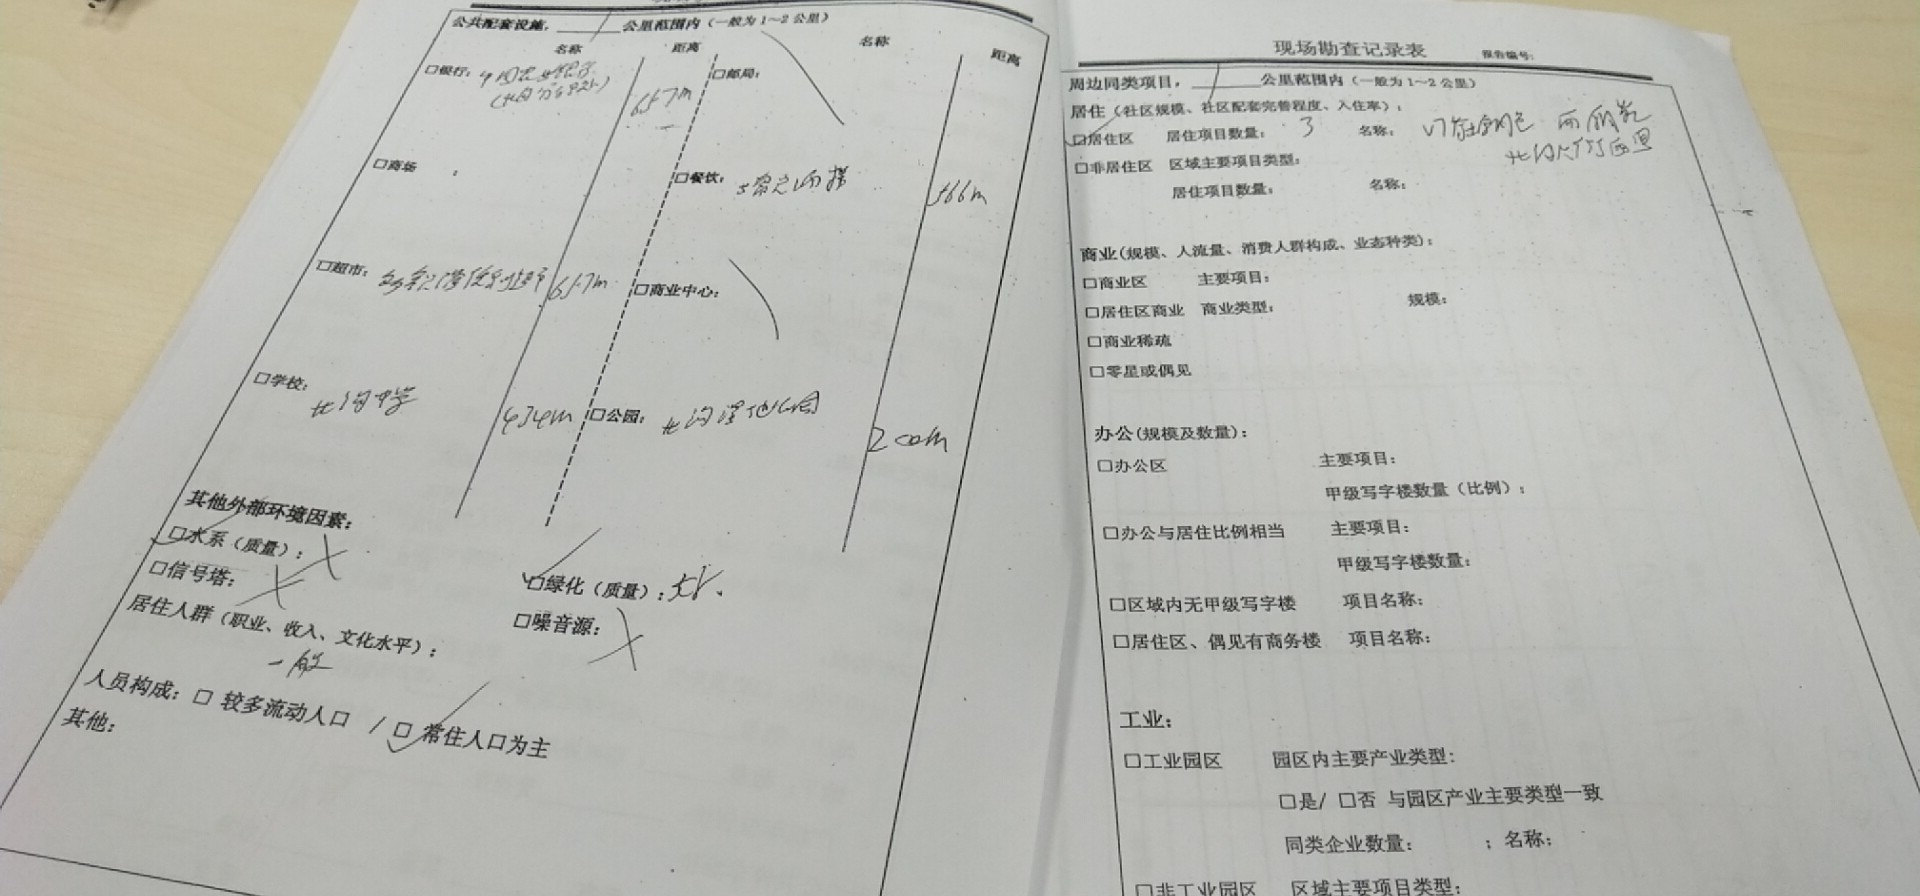 公共配套设施, / 公里范围内（一般为 1～2 公里）
名称 距离 名称 距离
□银行: 中国农业银行 657m □邮局:
□商场 : □餐饮: 566m
□超市: 657m □商业中心:
□学校: 北沟中学 434m □公园: 北沟湿地公园 200m
其他外部环境因素:
☑水系（质量）: ✗ ☑绿化（质量）: 好.
□信号塔: ✗ □噪音源: ✗
居住人群（职业、收入、文化水平）:
一般
人员构成: □ 较多流动人口 / ☑ 常住人口为主
其他:
现场勘查记录表 报告编号:
周边同类项目, / 公里范围内（一般为 1～2 公里）
居住（社区规模、社区配套完善程度、入住率）:
☑居住区 居住项目数量: 3 名称:
□非居住区 区域主要项目类型:
居住项目数量: 名称:
商业(规模、人流量、消费人群构成、业态种类):
□商业区 主要项目:
□居住区商业 商业类型: 规模:
□商业稀疏
□零星或偶见
办公(规模及数量):
□办公区 主要项目:
甲级写字楼数量（比例）:
□办公与居住比例相当 主要项目:
甲级写字楼数量:
□区域内无甲级写字楼 项目名称:
□居住区、偶见有商务楼 项目名称:
工业:
□工业园区 园区内主要产业类型:
□是/ □否 与园区产业主要类型一致
同类企业数量: ; 名称:
□非工业园区 区域主要项目类型: